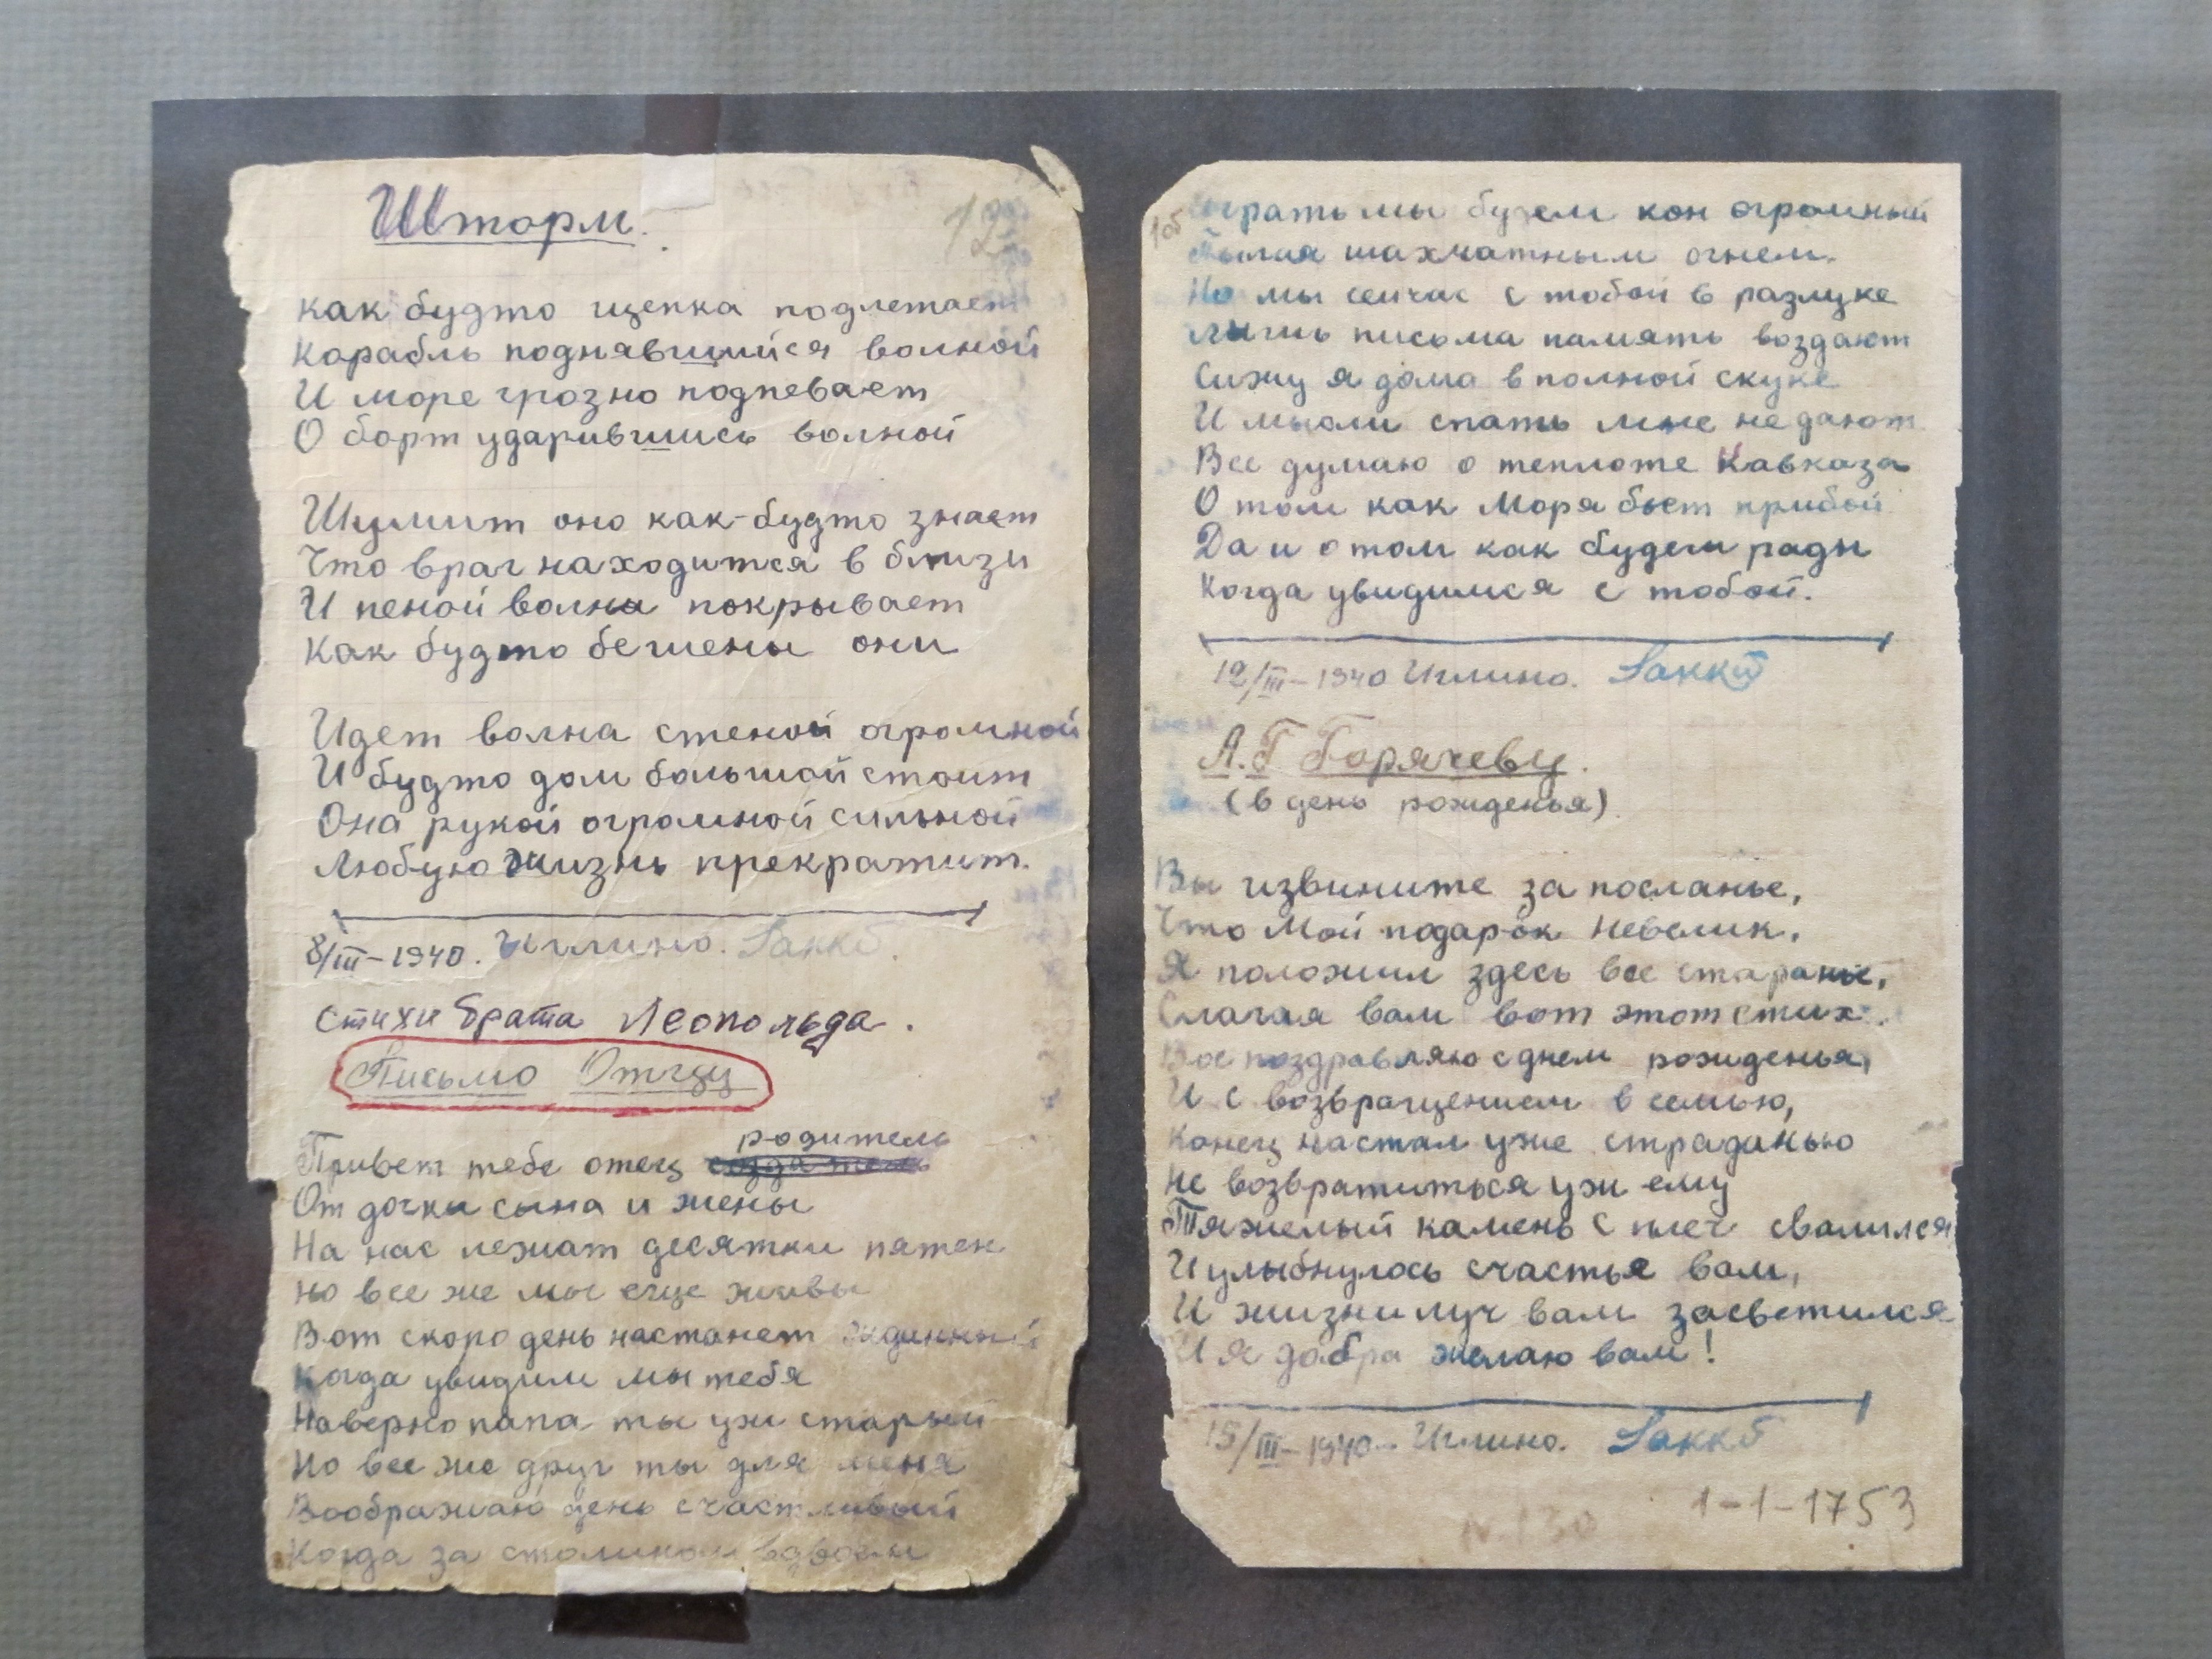 Шторм.
12
Как будто щепка подлетает
Корабль поднявшийся волной
И море грозно подпевает
О борт ударившись волной
Шумит оно как-будто знает
Что враг находится в близи
И пеной волны покрывает
Как будто бешены они
Идет волна стеной огромной
И будто дом большой стоит
Она рукой огромной сильной
Любую жизнь прекратит.
8/III-1940. Иглино.
Стихи брата Леопольда.
Письмо Отцу
родитель
Привет тебе отец
От дочки сына и жены
На нас лежат десятки пятен
Но все же мы еще живы
Вот скоро день настанет жданный
Когда увидим мы тебя
Наверно папа ты уж старый
Но все же друг ты для меня
Воображаю день счастливый
Когда за столиком вдвоем
1об
Играть мы будем кон огромный
Пылая шахматным огнем.
Но мы сейчас с тобой в разлуке
Лишь письма память воздают
Сижу я дома в полной скуке
И мысли спать мне не дают
Все думаю о теплоте Кавказа
О том как Моря бьет прибой
Да и о том как будем рады
Когда увидимся с тобой.
12/III-1940 Иглино.
А.Г Горячеву.
(в день рожденья).
Вы извините за посланье,
Что Мой подарок невелик,
Я положил здесь все старанье,
Слагая вам вот этот стих.
Вас поздравляю с днем рожденья,
И с возвращением в семью,
Конец настал уже страданью
Не возвратиться уж ему
Тяжелый камень с плеч свалился
И улыбнулось счастье вам,
И жизни луч вам засветился
И я добра желаю вам!
15/III-1940. Иглино.
1-1-1753